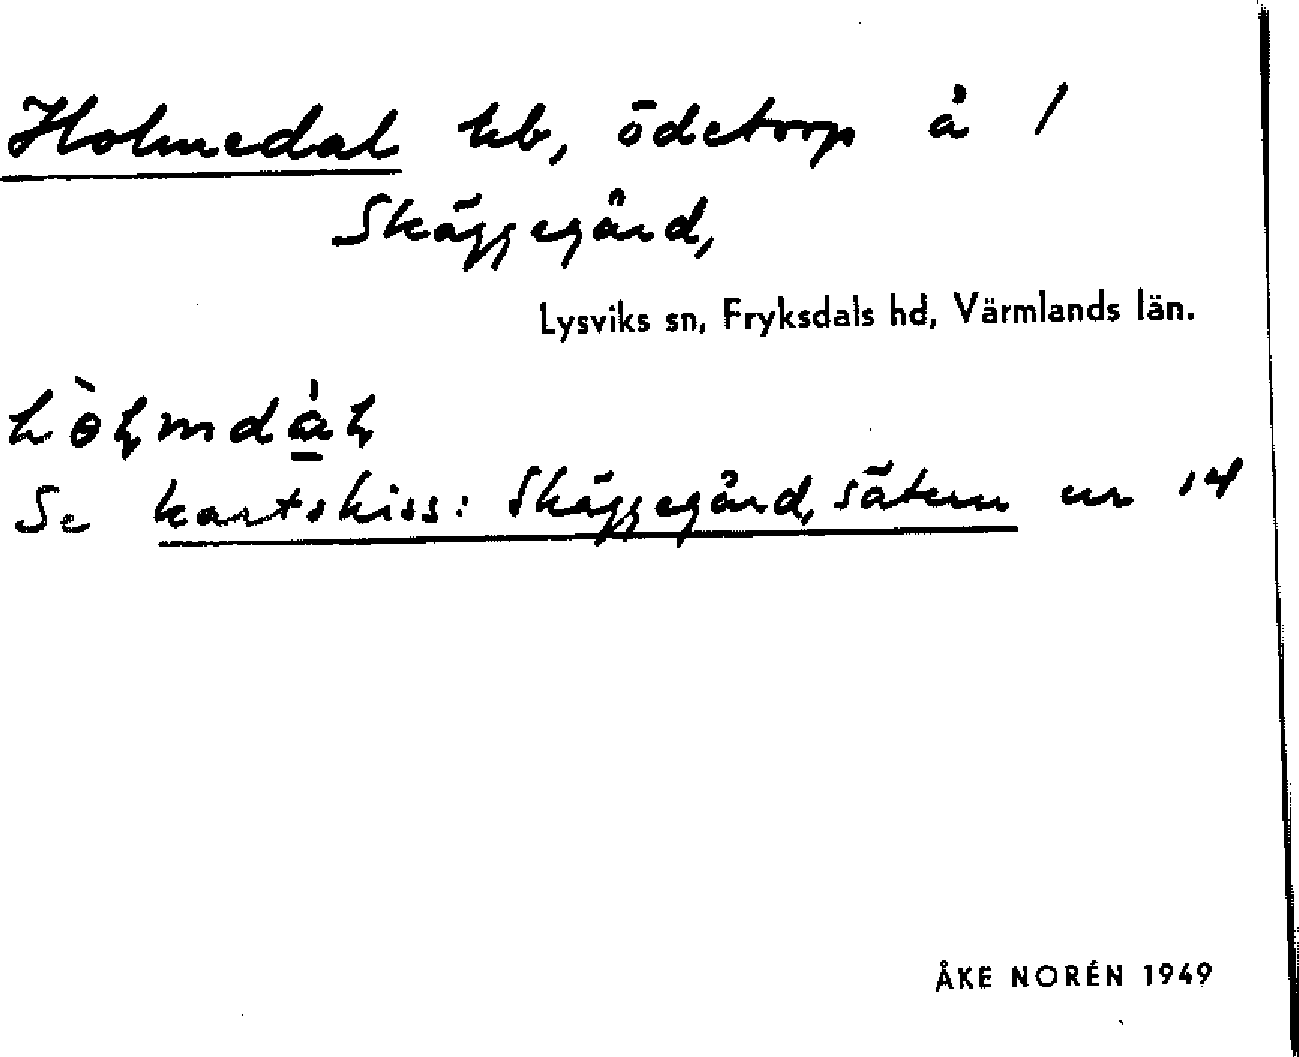 Holmedal hb, ödetorp å 1
Skäggegård,
Lysviks sn, Fryksdals hd, Värmlands län.
Se kartskiss: Skäggegård, sätern nr 14
ÅKE NORÉN 1949